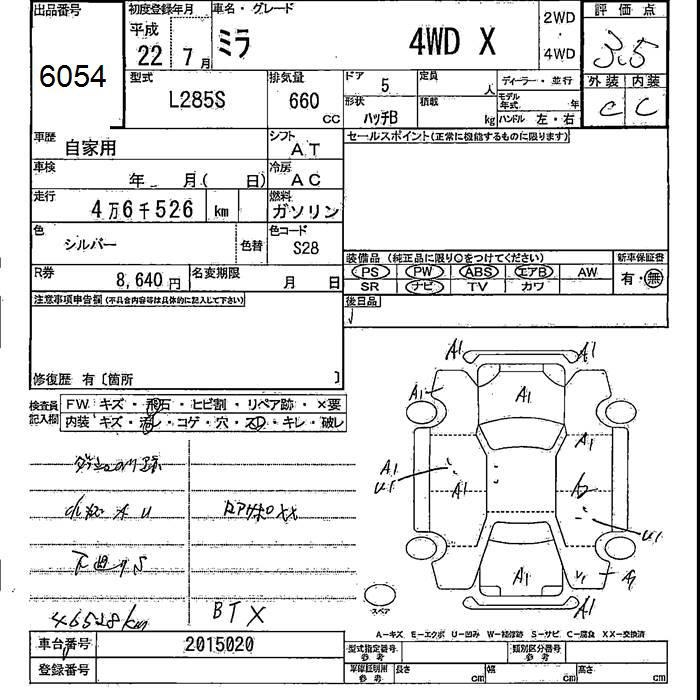 出品番号
6054
初度登録年月
平成
22 7月
車名・グレード
ミラ 4WD X
2WD
・
4WD
評価点
3.5
外装 内装
C C
型式
L285S
排気量
660
cc
ドア
5
定員
人
形状
ハッチB
積載
kg
ディーラー・並行
モデル年式 年
ハンドル 左・右
車歴
自家用
シフト
AT
車検
年 月( 日)
冷房
AC
走行
4万6千526 km
燃料
ガソリン
色
シルバー
色替
色コード
S28
R券
8,640円
名変期限
月 日
セールスポイント(正常に機能するものに限ります)
装備品(純正品に限り○をつけてください)
新車保証書
PS PW ABS エアB AW
SR ナビ TV カワ
有・無
後日品
注意事項申告欄(不具合内容等は具体的に記入して下さい)
修復歴 有〔箇所 〕
検査員記入欄
FW キズ・飛石・ヒビ割・リペア跡・×要
内装 キズ・汚レ・コゲ・穴・スレ・キレ・破レ
下廻りS
46528km
BTX
A1 A1
A1
A1
A1
A1
U1
A1
A2
U1
A1
A1
スペア
A-キズ E-エクボ U-凹み W-補修跡 S-サビ C-腐食 XX-交換済
車台番号
2015020
登録番号
型式指定番号
参考
類別区分番号
参考
車庫証明用
参考
長さ cm
幅 cm
高さ cm